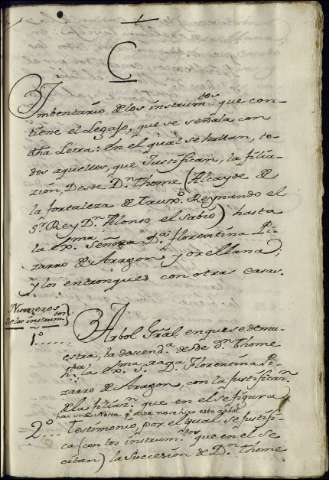 C
Imbentario de los instrum.tos que con-
tiene el Legajo, que se señala con
dha Letra: En el qual se hallan, to-
dos aquellos, que Justifican, la filia-
zión, desde D.n Thome (Alcayde de
la fortaleza de Reynando el
S.r Rey D.n Alonso el Savio) hasta
la ex.ma Señora D.a Florentina Pi-
zarro de Aragon y Orellana,
y los entronques con otras casas.
Numero
de los instrum.
1º Arbol Gral en que se demu-
estra, la descend.a de D.n Thome
hta la ex.ma S.ra D.a Florentina Pi-
zarro de Aragon, con la justifican
de la filiaz.n que en el se figura
2º Testimonio, por el qual, se justifi-
ca (con los instrum.tos que en el se
citan) la succesion de D.n Thome